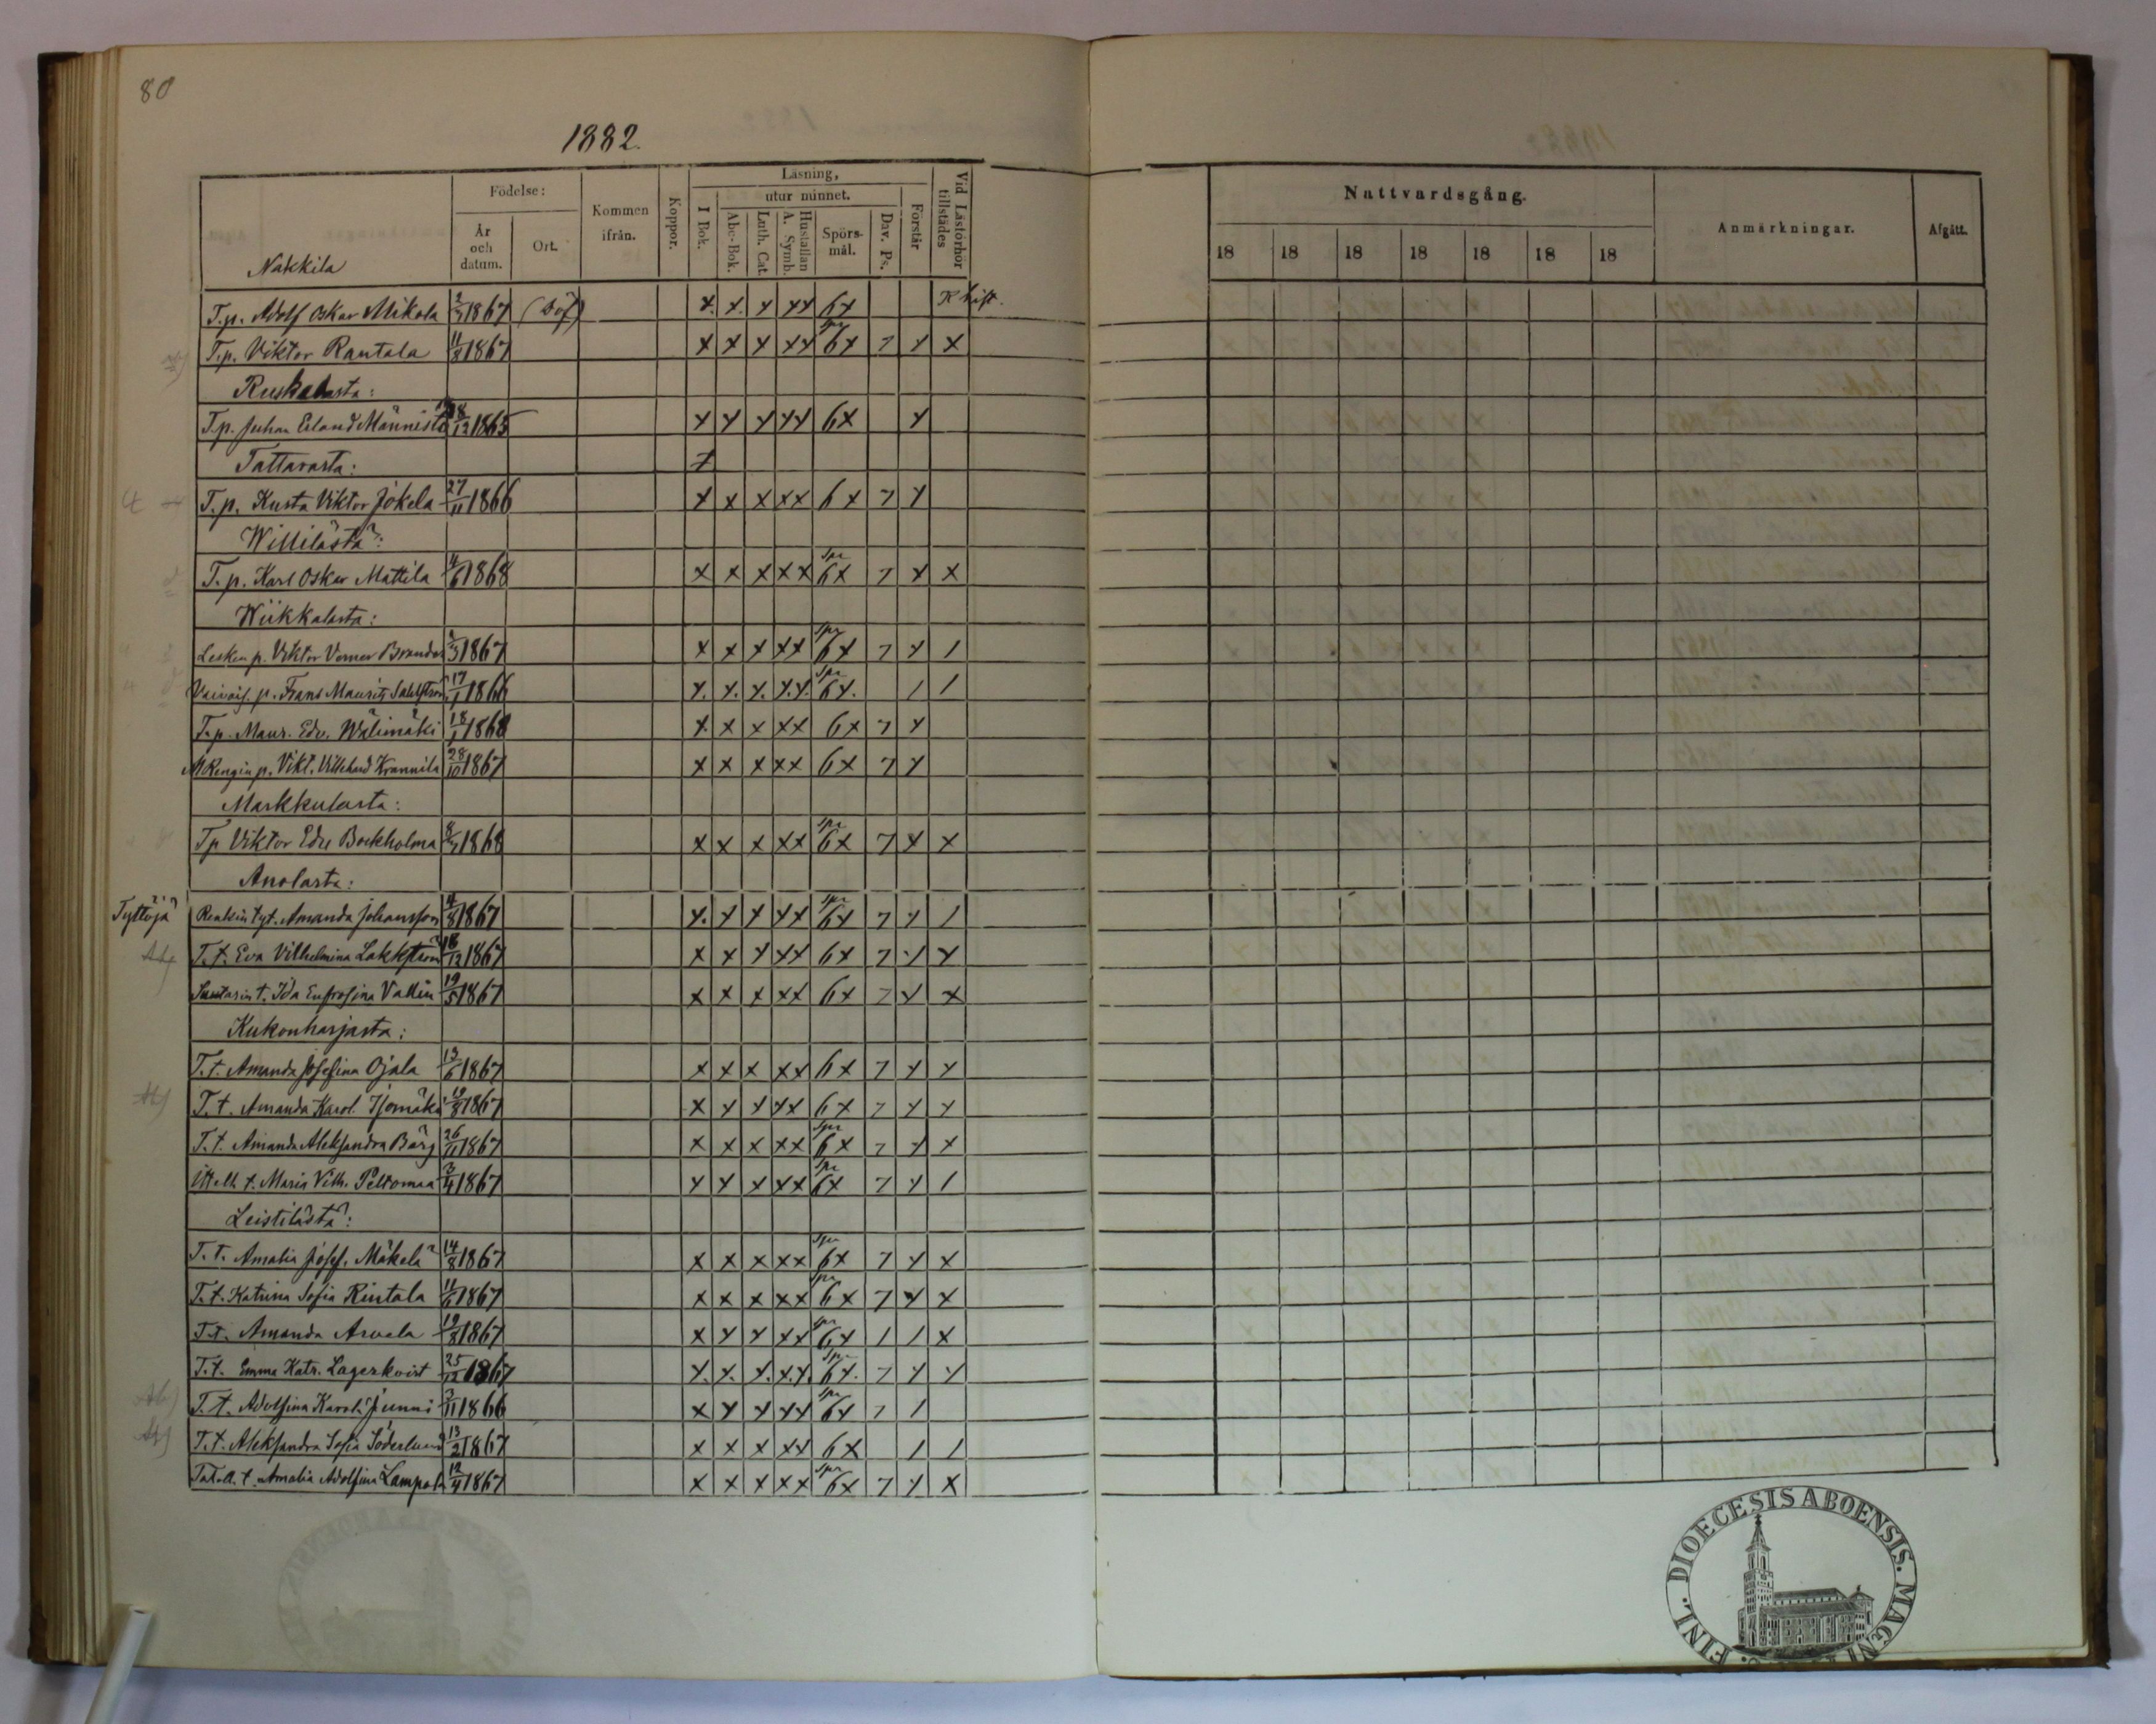 80
1882.
Nakkila
Födelse:
År och datum.
Ort.
Kommen ifrån.
Koppor.
Läsning,
I Bok.
utur minnet.
Abc-Bok.
Luth. Cat.
Hustaflan A. Symb.
Spörsmål.
Dav. Ps.
Förstår
Vid Läsförhör tillstädes
Nattvardsgång.
18 18 18 18 18 18 18
Anmärkningar.
Afgått.
T.p. Adolf Oskar Mikola 1867 x. x. x xx 6x
T.p. Viktor Rantala 11/8 1867 x x x xx 6x 7 x x
Ruskalasta:
T.p. Juhan Erland Männistö 1865 x x x xx 6x x
Tattarasta:
T.p. Kusta Viktor Jokela 27/11 1866 x x x xx 6x 7 x
Willilästä:
T.p. Karl Oskar Mattila 4/6 1868 x x x xx Spr 6x 7 x x
Wiikkalasta:
Lesken p. Viktor Verner 1867 x x x xx Spr 6x 7 x /
p. Frans Maurits 1866 x. x. x. x.x. Spr 6x. / /
T.p. Maur. Edv. Wälimäki 18/1 1868 x x x xx 6x 7 x
Rengin p. Vikt. Villehard Krannila 28/10 1867 x x x xx 6x 7 x
Markkulasta:
T.p Viktor Edv Bockholma 1868 x x x xx Spr 6x 7 x x
Anolasta:
Tyttöjä
tyt. Amanda Johansson 4/8 1867 x. x x xx Spr 6x 7 x /
T.t. Eva Vilhelmina 18/12 1867 x x x xx 6x 7 x x
t. Ida Eufrosina Vallin 19/5 1867 x x x xx 6x 7 x x
Kukonharjasta:
T.t. Amanda Josefina Ojala 13/6 1867 x x x xx 6x 7 x x
T.t. Amanda Karol. Isomäki 1867 x x x xx 6x 7 x x
T.t. Amanda Aleksandra Bärg 26/11 1867 x x x xx Spr 6x 7 x x
Itsell. t. Maria Vilh. Peltomaa 3/4 1867 x x x xx Spr 6x 7 x /
Leistilästä:
T.t. Amalia Josef. Mäkelä 14/8 1867 x x x xx Spr 6x 7 x x
T.t. Katrina Sofia Rintala 11/6 1867 x x x xx Spr 6x 7 x x
T.t. Amanda Arvela 19/8 1867 x x x xx Spr 6x / / x
T.t. Emma Katr. Lagerkvist 25/12 1867 x. x. x. x.x. Spr 6x. 7 x x
T.t. Adolfina Karol. Junni 3/11 1866 x x x xx Spr 6x 7 /
T.t. Aleksandra Sofia Söderlund 13/2 1867 x x x xx 6x / /
t. Amalia Adolfina Lampola 12/4 1867 x x x xx Spr 6x 7 x x
DIOECESIS ABOENSIS. MAGNI
FINL.